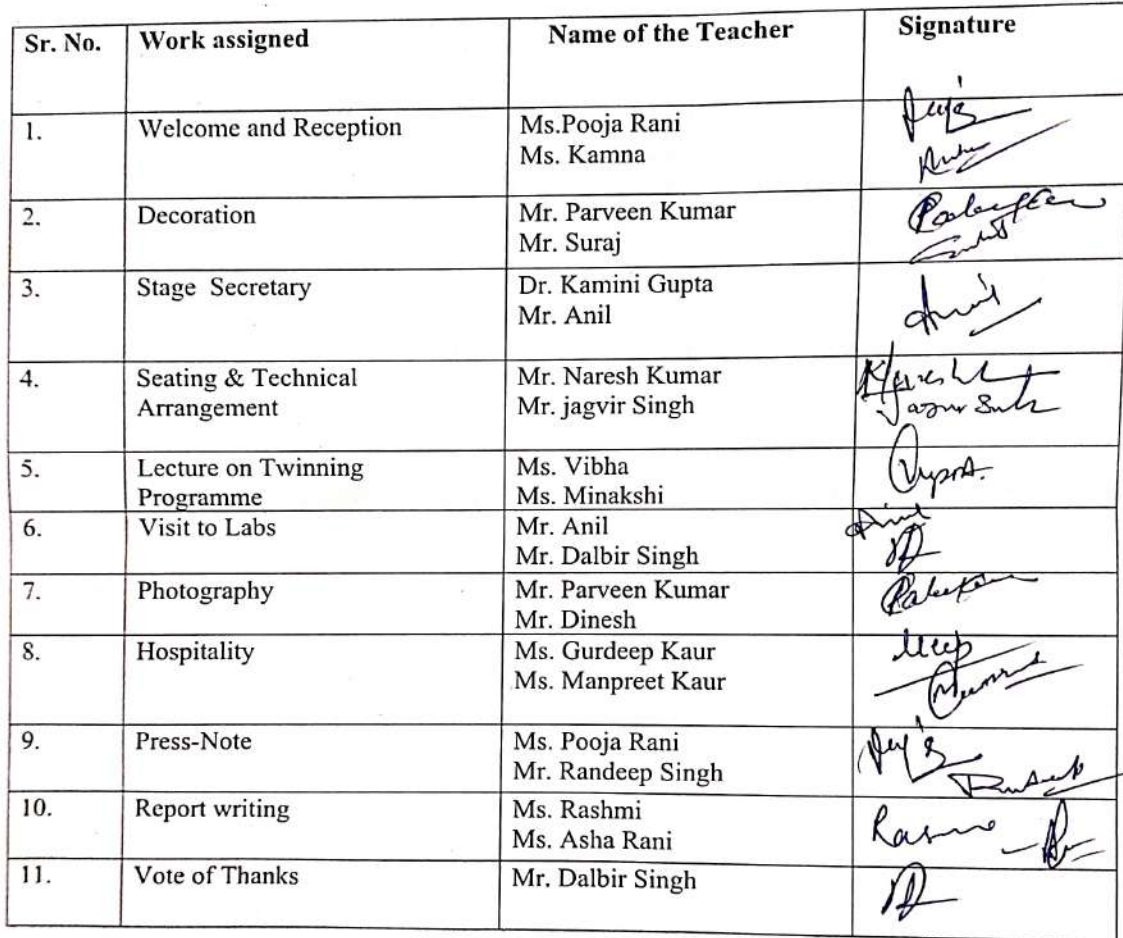 Sr. No. Work assigned Name of the Teacher Signature
1. Welcome and Reception Ms.Pooja Rani
Ms. Kamna
2. Decoration Mr. Parveen Kumar
Mr. Suraj
3. Stage Secretary Dr. Kamini Gupta
Mr. Anil
4. Seating & Technical Mr. Naresh Kumar
Arrangement Mr. jagvir Singh
5. Lecture on Twinning Ms. Vibha
Programme Ms. Minakshi
6. Visit to Labs Mr. Anil
Mr. Dalbir Singh
7. Photography Mr. Parveen Kumar
Mr. Dinesh
8. Hospitality Ms. Gurdeep Kaur
Ms. Manpreet Kaur
9. Press-Note Ms. Pooja Rani
Mr. Randeep Singh
10. Report writing Ms. Rashmi
Ms. Asha Rani
11. Vote of Thanks Mr. Dalbir Singh